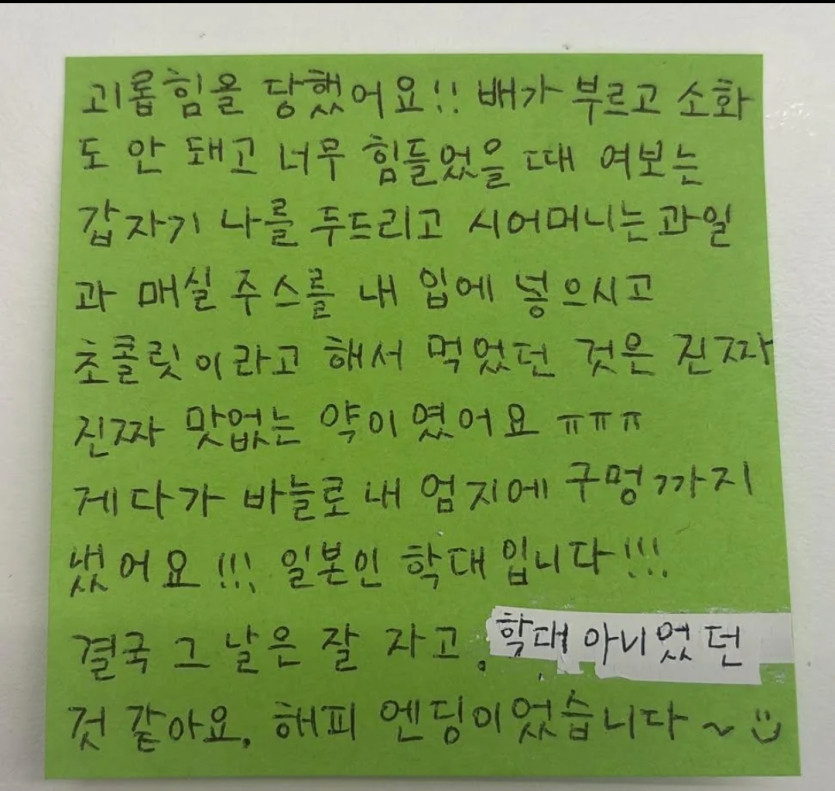 괴롭힘을 당했어요!! 배가 부르고 소화
도 안 돼고 너무 힘들었을 때 여보는
갑자기 나를 두드리고 시어머니는 과일
과 매실 주스를 내 입에 넣으시고
초콜릿이라고 해서 먹었던 것은 진짜
진짜 맛없는 약이였어요 ㅠㅠㅠ
게다가 바늘로 내 엄지에 구멍까지
냈어요!!! 일본인 학대입니다!!!
결국 그 날은 잘 자고, 학대 아니었던
것 같아요. 해피 엔딩이었습니다~